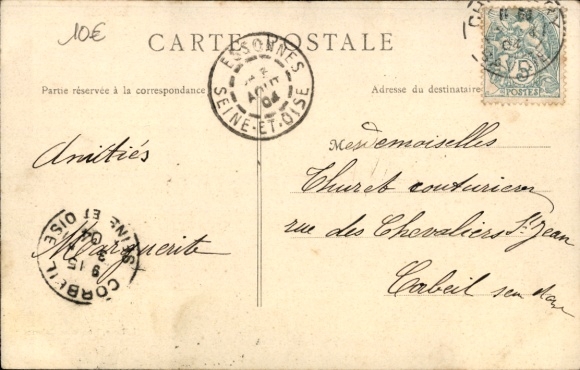 10€
CARTE POSTALE
Partie réservée à la correspondance
Adresse du destinataire
ESSONNES
AOUT
04
SEINE-ET-OISE
5
POSTES
Amitiés
Marguerite
CORBEIL
9 15
3
04
SEINE ET OISE
Mesdemoiselles
Thuret couturières
rue des Chevaliers St Jean
Corbeil